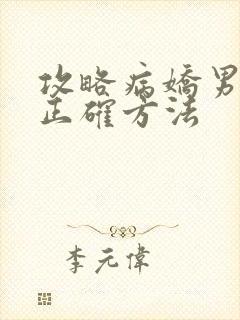 攻略病嬌男
正確方法
李元偉